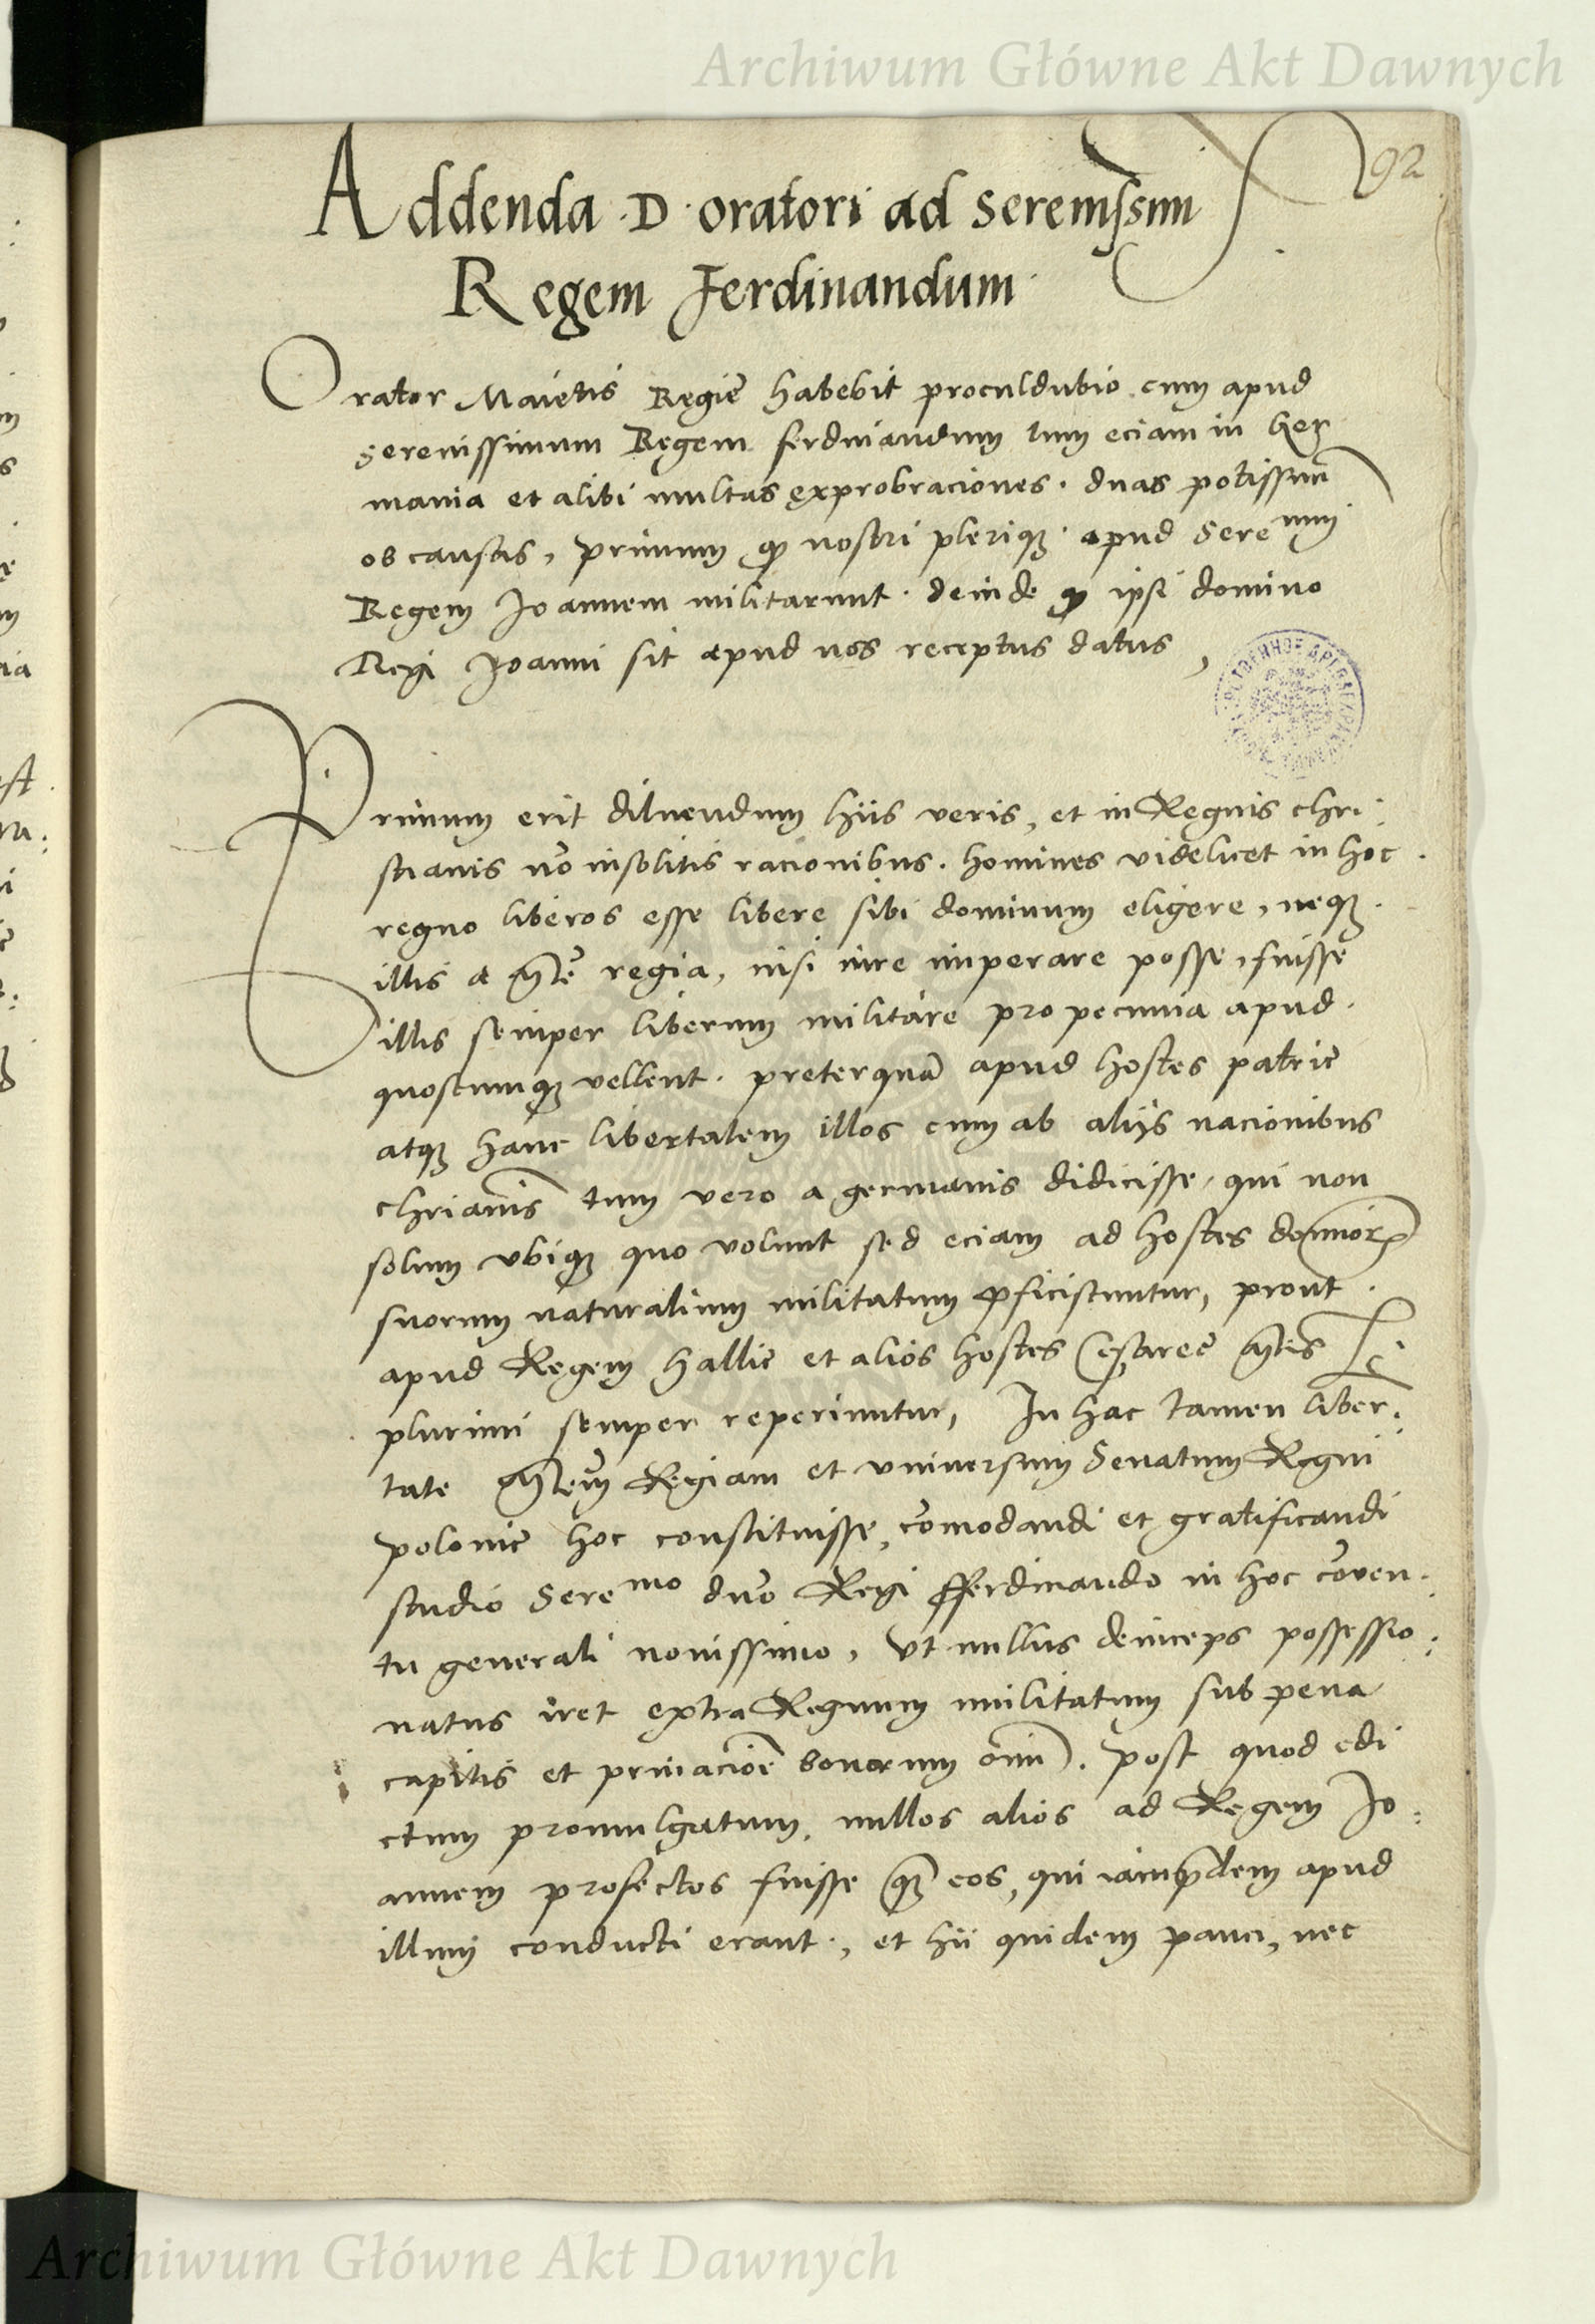 Archiwum Główne Akt Dawnych
92
Addenda D. oratori ad Serenissim
Regem Ferdinandum
Orator Maietis Regie habebit proculdubio cum apud
Serenissimum Regem ferdinandum tum eciam in Ger
mania et alibi multas exprobraciones. duas potissimū
ob causas, primum qꝫ nostri pleriqꝫ apud Serenum
Regem Joannem militarunt. deinde qꝫ ipsi domino
Regi Joanni sit apud nos receptus datus,
Primum erit diluendum hiis veris, et in Regnis chri:
stianis nō insolitis racionibus. homines videlicet in hoc
regno liberos esse libere sibi dominum eligere, neqꝫ
illis a Mte regia, nisi iure imperare posse, fuisse
illis semper liberum militare pro pecunia apud
quoscumqꝫ vellent. preterquā apud hostes patrie
atqꝫ hanc libertatem illos cum ab aliis nacionibus
chrianis tum vero a germanis didicisse, qui non
solum vbiqꝫ quo volunt sed eciam ad hostes dominorꝫ
suorum naturalium militatum ꝓficiscuntur, prout
apud Regem Gallie et alios hostes Cesaree Mtis
plurimi semper reperiuntur, In hac tamen liber:
tate Mtem Regiam et vniuersum Senatum Regni
polonie hoc constituisse, cōmodandi et gratificandi
studio Seremo dno Regi fferdinando in hoc cōuen:
tu generali nouissimo, vt nullus deinceps possessio:
natus iret extra Regnum militatum sub pena
capitis et priuacione bonorum oīm. post quod edi
ctum promulgatum, nullos alios ad Regem Jo:
annem profectos fuisse qꝫ eos, qui iampridem apud
illum conducti erant, et hii quidem pauci, nec
Archiwum Główne Akt Dawnych